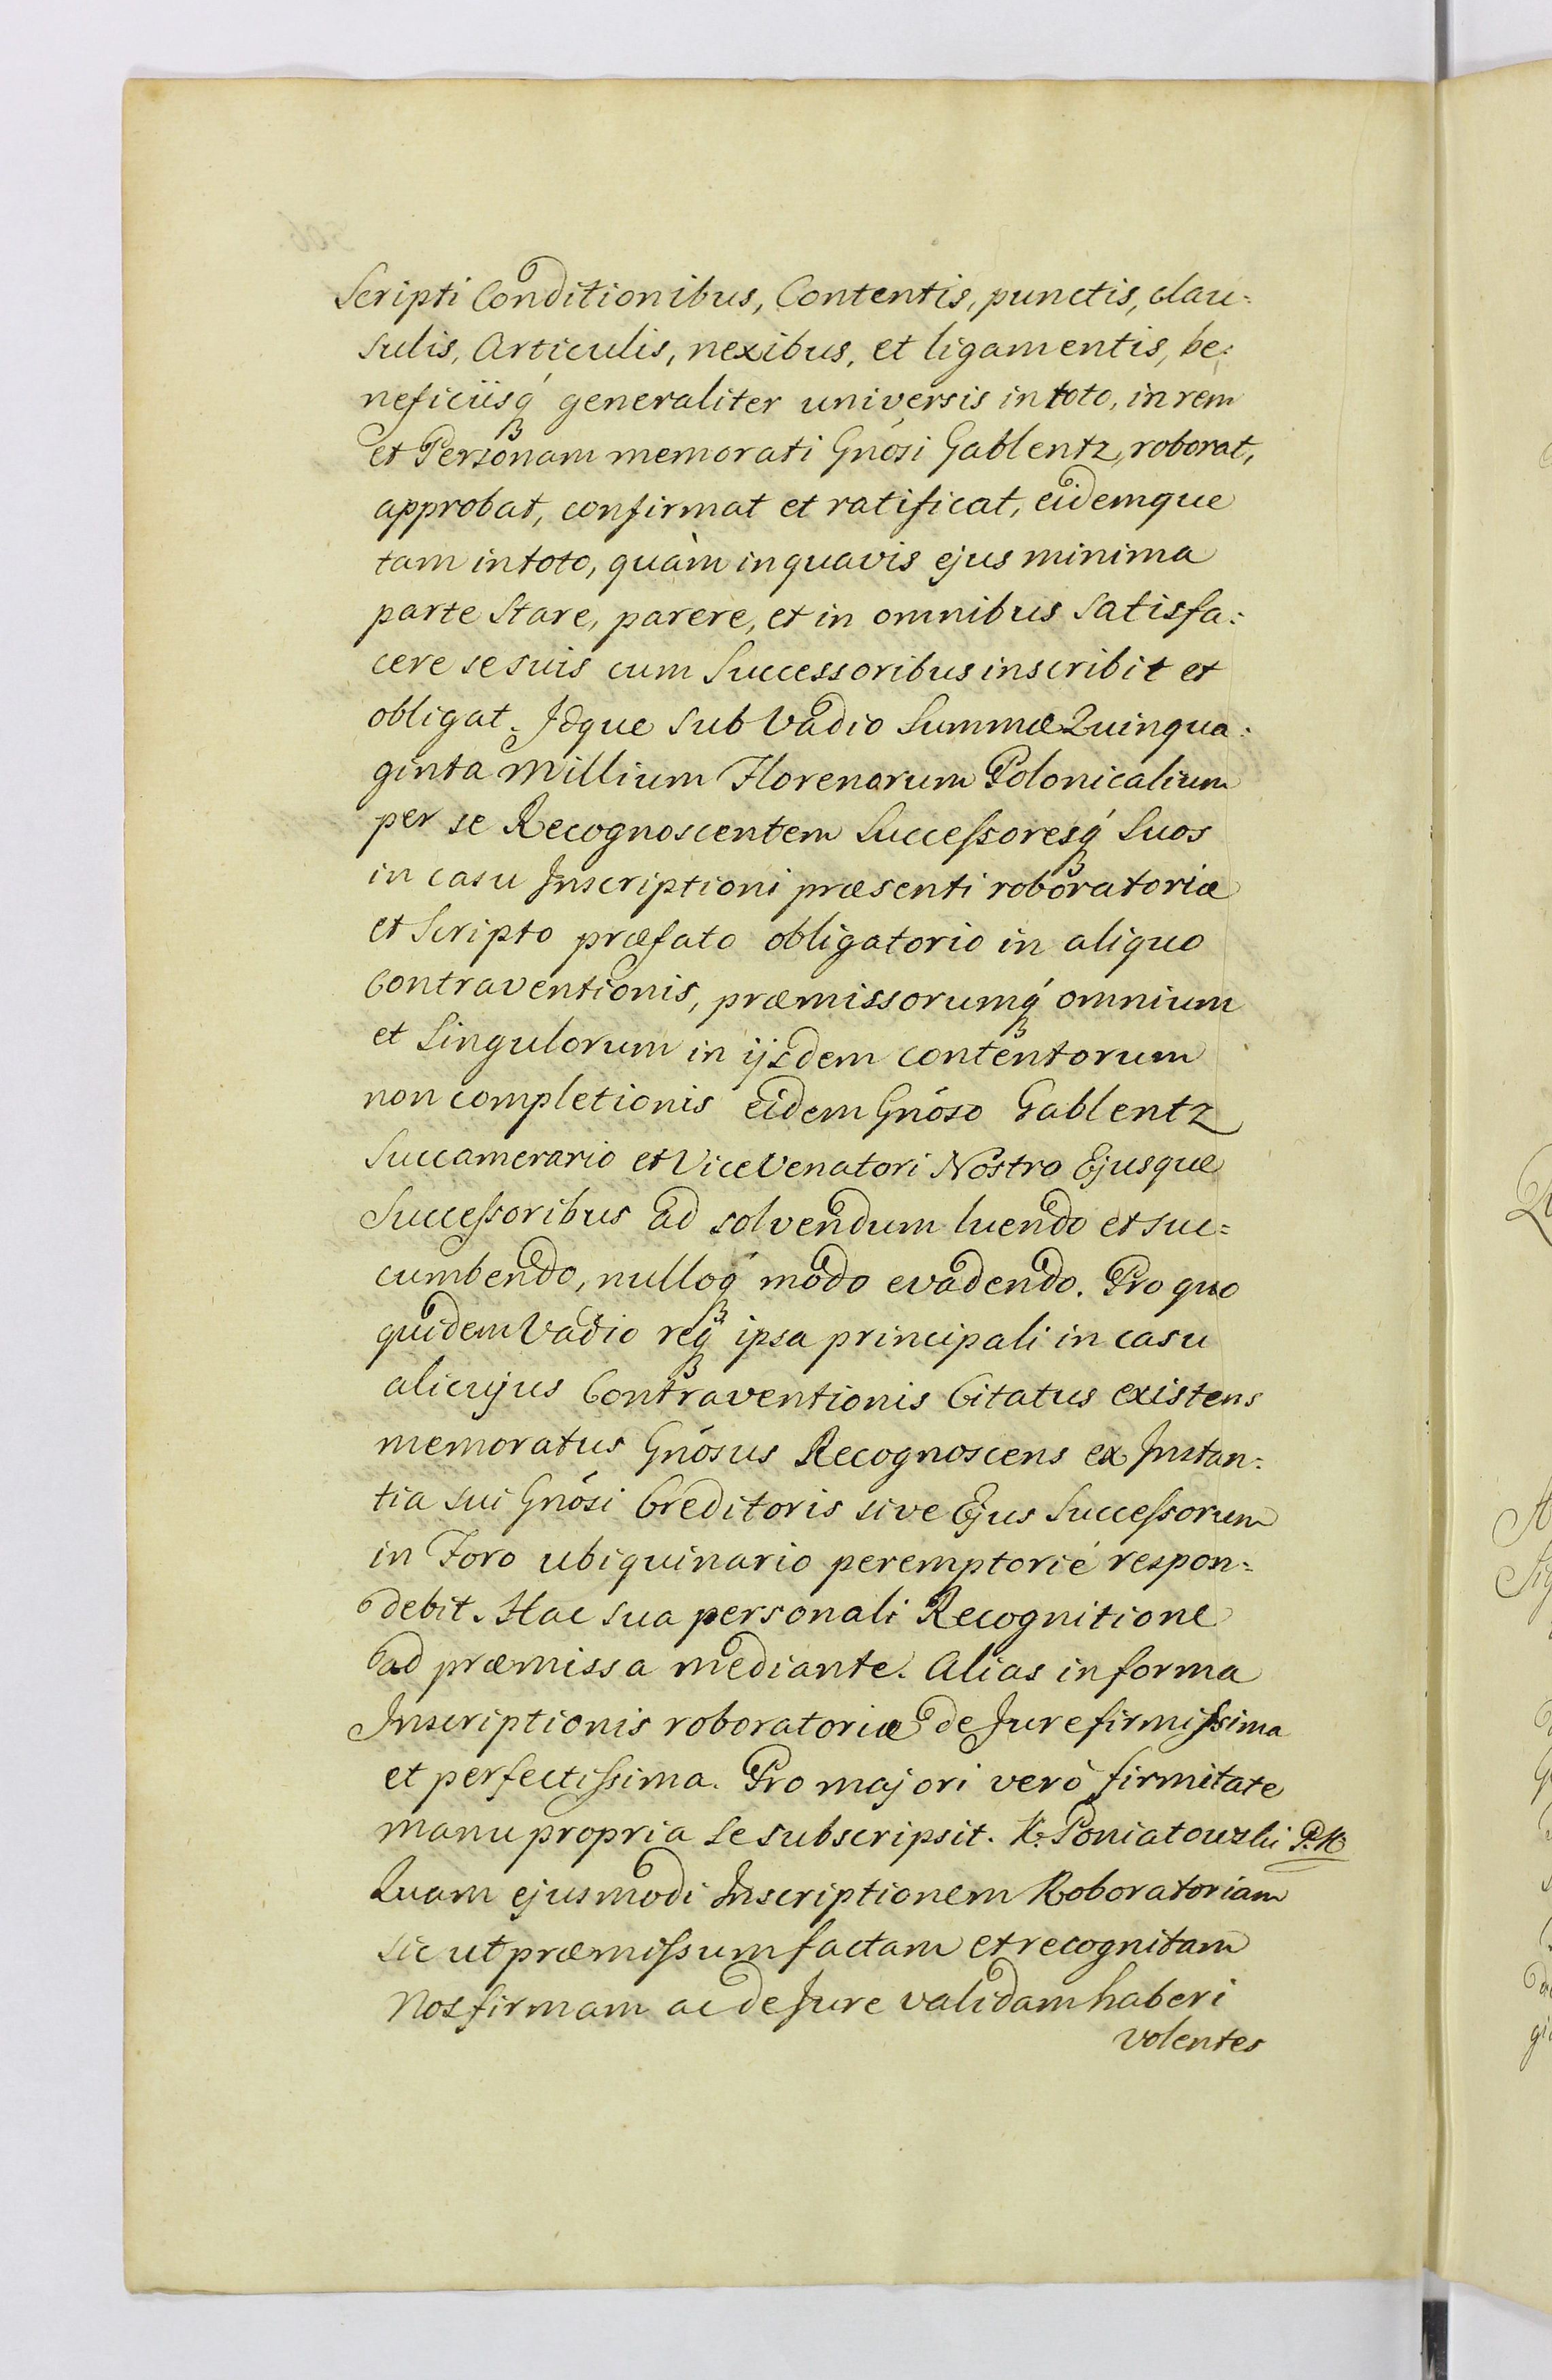 Scripti Conditionibus, Contentis, punctis, clau:
sulis, Articulis, nexibus, et ligamentis, be:
neficiisq́ generaliter universis in toto, in rem
et Personam memorati Gnósi Gablentz, roborat,
approbat, confirmat et ratificat, eidemque
tam in toto, quàm in quavis ejus minima
parte Stare, parere, et in omnibus satisfa:
cere se suis cum Successoribus inscribit et
obligat. Idque sub Vadio Summæ Quinqua:
ginta Millium Florenorum Polonicalium
per se Recognoscentem Successoresq́ Suos
in casu Inscriptioni præsenti roboratoriæ
et Scripto præfato obligatorio in aliquo
Contraventionis, præmissorumq́ omnium
et Singulorum in ijsdem contentorum
non completionis eidem Gnóso Gablentz
Succamerario et Vice Venatori Nostro Ejusque
Successoribus ad solvendum luendo et suc=
cumbendo, nulloq́ modo evadendo. Pro quo
quidem Vadio req́ ipsa principali in casu
alicujus Contraventionis Citatus existens
memoratus Gnósus Recognoscens ex Instan:
tia sui Gnósi Creditoris sive Ejus Successorum
in Foro ubiquinario peremptorié respon:
debit. Hac sua personali Recognitione
ad præmissa mediante. Alias in forma
Inscriptionis roboratoriæ de Jure firmissima
et perfectissima. Pro majori verò firmitate
manu propria se subscripsit. K. Poniatowski P. K
Quam ejusmodi Inscriptionem Roboratoriam
sic ut præmissum factam et recognitam
Nos firmam ac de Jure validam haberi
volentes